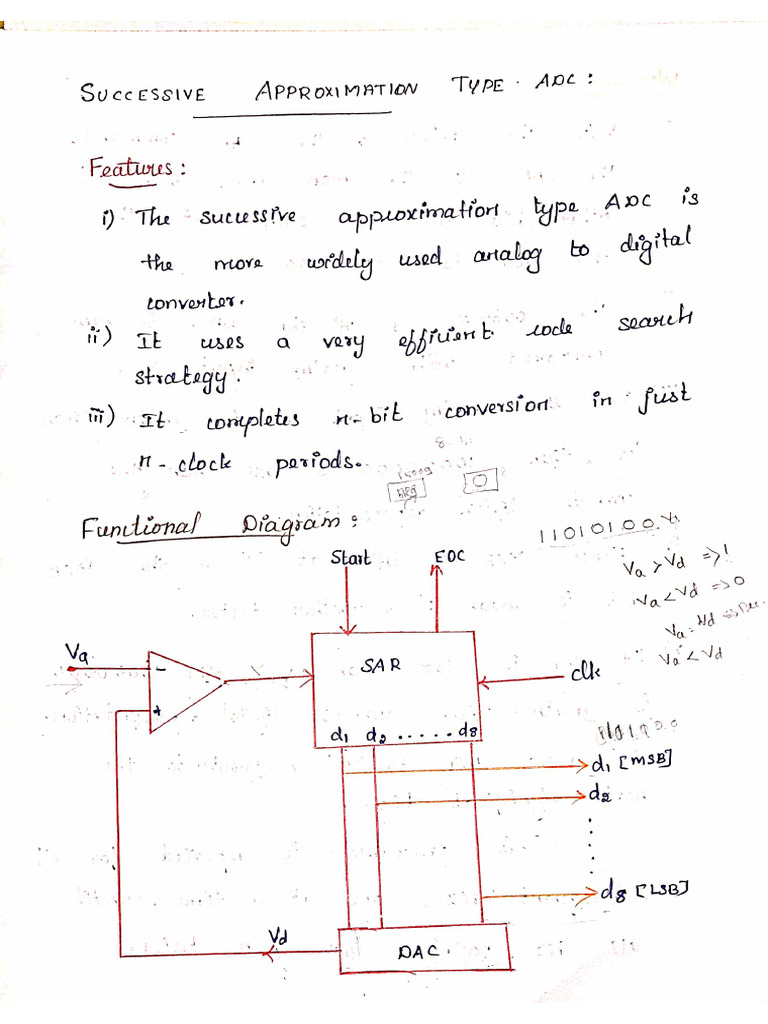 SUCCESSIVE APPROXIMATION TYPE ADC:
Features:
i) The successive approximation type ADC is
the more widely used analog to digital
converter.
ii) It uses a very efficient code search
strategy.
iii) It completes n-bit conversion in just
n-clock periods.
Functional Diagram:
11010100
Start EOC
Va > Vd => 1
Va < Vd => 0
Va = Vd =>
Va < Vd
Va
-
+
SAR
clk
d1 d2 ..... d8
d1 [MSB]
d2
d8 [LSB]
Vd
DAC.